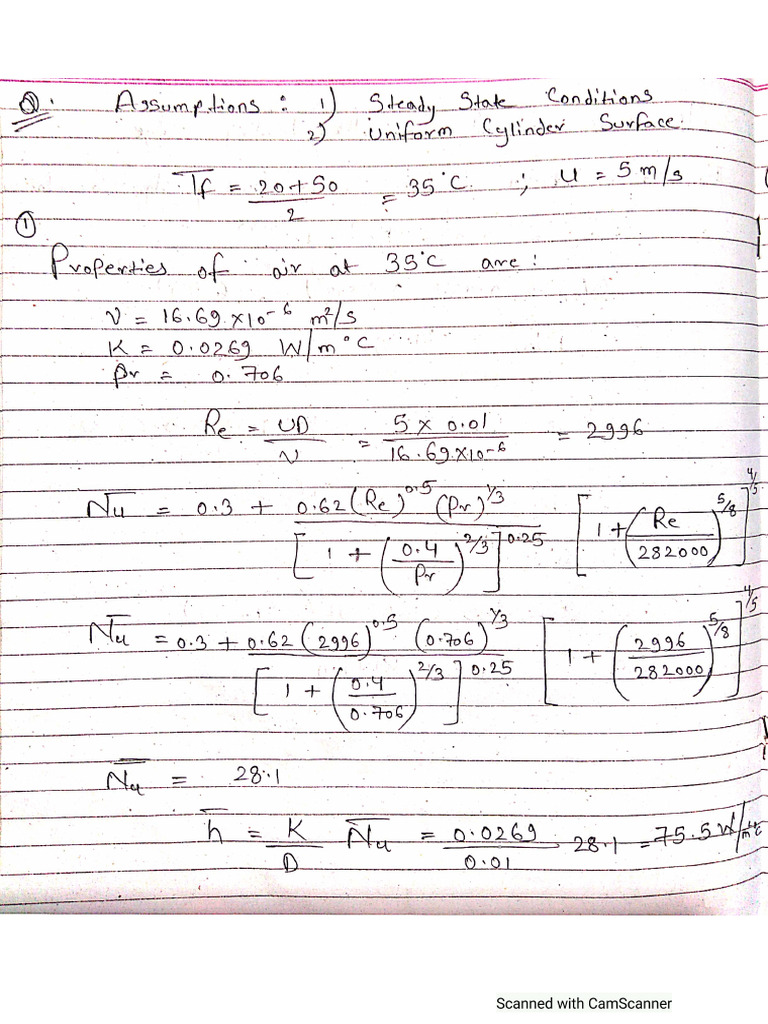 Q. Assumptions: 1) Steady State Conditions
2) Uniform Cylinder Surface.
Tf = 20+50 / 2 = 35°C ; U = 5 m/s
①
Properties of air at 35°C are:
ν = 16.69 × 10^-6 m²/s
K = 0.0269 W/m°C
Pr = 0.706
Re = UD / ν = 5 × 0.01 / 16.69 × 10^-6 = 2996
N̅u̅ = 0.3 + 0.62 (Re)^0.5 (Pr)^1/3 / [1 + (0.4 / Pr)^2/3]^0.25 [1 + (Re / 282000)^5/8]^4/5
N̅u̅ = 0.3 + 0.62 (2996)^0.5 (0.706)^1/3 / [1 + (0.4 / 0.706)^2/3]^0.25 [1 + (2996 / 282000)^5/8]^4/5
N̅u̅ = 28.1
h̅ = K / D N̅u̅ = 0.0269 / 0.01 28.1 = 75.5 W/m²°C
Scanned with CamScanner